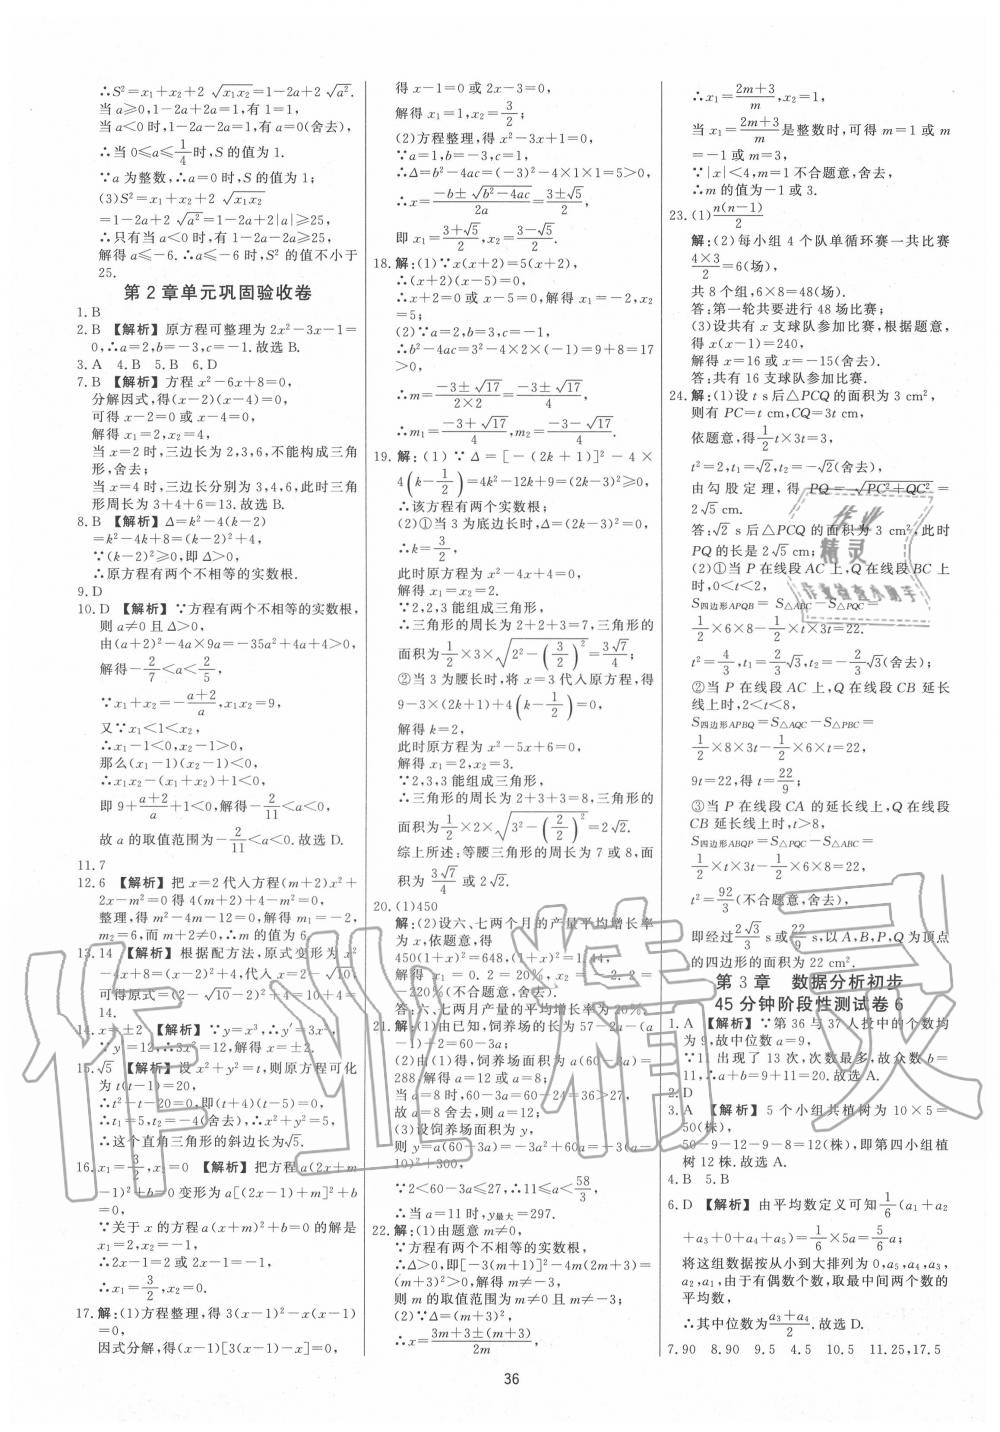 ∴S²=x₁+x₂+2√(x₁x₂)=1-2a+2√(a²).
当a≥0,1-2a+2a=1,有1=1,
当a<0时,1-2a-2a=1,有a=0(舍去),
∴当0≤a≤1/4时,S的值为1.
∵a为整数,∴S的值为1;
(3)S²=x₁+x₂+2√(x₁x₂)
=1-2a+2√(a²)=1-2a+2|a|≥25,
∴只有当a<0时,有1-2a-2a≥25,
解得a≤-6.∴a≤-6时,S²的值不小于
25.
第2章单元巩固验收卷
1.B
2.B 【解析】原方程可整理为2x²-3x-1=
0,∴a=2,b=-3,c=-1.故选B.
3.A 4.B 5.B 6.D
7.B 【解析】方程x²-6x+8=0,
分解因式,得(x-2)(x-4)=0,
可得x-2=0或x-4=0,
解得x₁=2,x₂=4,
当x=2时,三边长为2,3,6,不能构成三角
形,舍去;
当x=4时,三边长分别为3,4,6,此时三角
形周长为3+4+6=13.故选B.
8.B 【解析】Δ=k²-4(k-2)
=k²-4k+8=(k-2)²+4,
∵(k-2)²≥0,即Δ>0,
∴原方程有两个不相等的实数根.
9.D
10.D 【解析】∵方程有两个不相等的实数根,
则a≠0且Δ>0,
由(a+2)²-4a×9a=-35a²+4a+4>0,
解得-2/7<a<2/5,
∵x₁+x₂=-(a+2)/a,x₁x₂=9,
又∵x₁<1<x₂,
∴x₁-1<0,x₂-1>0,
那么(x₁-1)(x₂-1)<0,
∴x₁x₂-(x₁+x₂)+1<0,
即9+(a+2)/a+1<0,解得-2/11<a<0,
故a的取值范围为-2/11<a<0.故选D.
11.7
12.6 【解析】把x=2代入方程(m+2)x²+
2x-m²=0得4(m+2)+4-m²=0,
整理,得m²-4m-12=0,解得m₁=-2,
m₂=6,而m+2≠0,∴m的值为6.
13.14 【解析】根据配方法,原式变形为x²
-4x+8=(x-2)²+4,代入x=
可得原式=(2-√10-2)²+4=10+4=
14.
14.x=±2 【解析】∵y=x³,∴y′=3x²,
∵y′=12,∴3x²=12,解得x=±2.
15.√5 【解析】设x²+y²=t,则原方程可化
为t(t-1)=20,
∴t²-t-20=0,即(t+4)(t-5)=0,
∴t₁=5,t₂=-4(舍去),∴x²+y²=5,
∴这个直角三角形的斜边长为√5.
16.x₁=3/2,x₂=0 【解析】把方程a(2x+m
-1)²+b=0变形为a[(2x-1)+m]²+b
=0,
∵关于x的方程a(x+m)²+b=0的解是
∴2x-1=2或2x-1=-1,
∴x₁=3/2,x₂=0.
17.解:(1)方程整理,得3(x-1)²-x(x-1)
=0,
因式分解,得(x-1)[3(x-1)-x]=0,
得x-1=0或2x-3=0,
解得x₁=1,x₂=3/2;
(2)方程整理,得x²-3x+1=0,
∵a=1,b=-3,c=1,
∴Δ=b²-4ac=(-3)²-4×1×1=5>0,
∴x=(-b±√(b²-4ac))/2a=(3±√5)/2,
即x₁=(3+√5)/2,x₂=(3-√5)/2.
18.解:(1)∵x(x+2)=5(x+2),
∴(x+2)(x-5)=0,
∴x+2=0或x-5=0,解得x₁=-2,x₂
=5;
(2)∵a=2,b=3,c=-1,
∴b²-4ac=3²-4×2×(-1)=9+8=17
>0,
∴m=(-3±√17)/(2×2)=(-3±√17)/4,
∴m₁=(-3+√17)/4,m₂=(-3-√17)/4.
19.解:(1)∵Δ=[-(2k+1)]²-4×
4(k-1/2)=4k²-12k+9=(2k-3)²≥0,
∴该方程有两个实数根;
(2)①当3为底边长时,Δ=(2k-3)²=0,
∴k=3/2,
此时原方程为x²-4x+4=0,
解得x₁=x₂=2.
∵2,2,3能组成三角形,
∴三角形的周长为2+2+3=7,三角形的
面积为1/2×3×√(2²-(3/2)²)=3√7/4;
②当3为腰长时,将x=3代入原方程,得
9-3×(2k+1)+4(k-1/2)=0,
解得k=2,
此时原方程为x²-5x+6=0,
解得x₁=2,x₂=3.
∵2,3,3能组成三角形,
∴三角形的周长为2+3+3=8,三角形的
面积为1/2×2×√(3²-(2/2)²)=2√2.
综上所述:等腰三角形的周长为7或8,面
积为3√7/4或2√2.
20.(1)450
解:(2)设六、七两个月的产量平均增长率
为x,依题意,得
450(1+x)²=648,(1+x)²=1.44,
解得x₁=0.2=20%,x₂=-2.2=
-220%(不合题意,舍去).
答:六、七两月产量的平均增长率为20%.
21.解:(1)由已知,饲养场的长为57-2a-(a
-1)+2=60-3a;
(2)由(1)得,饲养场面积为a(60-3a)=
288,解得a=12或a=8,
当a=8时,60-3a=60-24=36>27,
故a=8舍去,则a=12;
(3)设饲养场面积为y,
则y=a(60-3a)=-3a²+60a=-3(a-
10)²+300,
∵2<60-3a≤27,∴11≤a<58/3,
∴当a=11时,y最大=297.
22.解:(1)由题意m≠0,
∵方程有两个不相等的实数根,
∴Δ>0,即[-3(m+1)]²-4m(2m+3)
=(m+3)²>0,解得m≠-3,
则m的取值范围为m≠0且m≠-3;
(2)∵Δ=(m+3)²,
∴x=(3m+3±(m+3))/2m,
∴x₁=(2m+3)/m,x₂=1,
当x₁=(2m+3)/m是整数时,可得m=1或m
=-1或m=3,
∵|x|<4,m=1不合题意,舍去,
∴m的值为-1或3.
23.(1)n(n-1)/2
解:(2)每小组4个队单循环赛一共比赛
4×3/2=6(场),
共8个组,6×8=48(场).
答:第一轮共要进行48场比赛;
(3)设共有x支球队参加比赛,根据题意,
得x(x-1)=240,
解得x=16或x=-15(舍去).
答:共有16支球队参加比赛.
24.解:(1)设t s后△PCQ的面积为3 cm²,
则有PC=t cm,CQ=3t cm,
依题意,得1/2t×3t=3,
t²=2,t₁=√2,t₂=-√2(舍去),
由勾股定理,得PQ=√(PC²+QC²)=
2√5 cm.
答:√2 s后△PCQ的面积为3 cm²,此时
PQ的长是2√5 cm;
(2)①当P在线段AC上,Q在线段BC上
时,0<t<2,
S四边形APQB=S△ABC-S△PCQ=
1/2×6×8-1/2×t×3t=22.
t²=4/3,t₁=2/3√3,t₂=-2/3√3(舍去);
②当P在线段AC上,Q在线段CB延长
线上时,2<t<8,
S四边形APBQ=S△AQC-S△PBC=
1/2×8×3t-1/2×t×6=22,
9t=22,得t=22/9;
③当P在线段CA的延长线上,Q在线段
CB延长线上时,t>8,
S四边形ABQP=S△PQC-S△ABC=
1/2×t×3t-1/2×6×8=22,
t²=92/3(不合题意,舍去),
即经过2√3/3 s或22/9 s,以A,B,P,Q为顶点
的四边形的面积为22 cm².
第3章 数据分析初步
45分钟阶段性测试卷6
1.A 【解析】∵第36与37人投中的个数均
为9,故中位数a=9,
∵11出现了13次,次数最多,故众数b=
11,∴a+b=9+11=20.故选A.
2.D
3.A 【解析】5个小组共植树为10×5=
50(株),
50-9-12-9-8=12(株),即第四小组植
树12株.故选A.
4.B 5.B
6.D 【解析】由平均数定义可知1/6(a₁+a₂
+a₃+0+a₄+a₅)=1/6×5a=5/6a;
将这组数据按从小到大排列为0,a₅,a₄,a₃,
a₂,a₁,由于有偶数个数,取最中间两个数的
平均数,
∴其中位数为(a₃+a₄)/2.故选D.
7.90 8.90 9.5 4.5 10.5 11.25,17.5
36
作业精灵
作业精灵
作业检查小助手